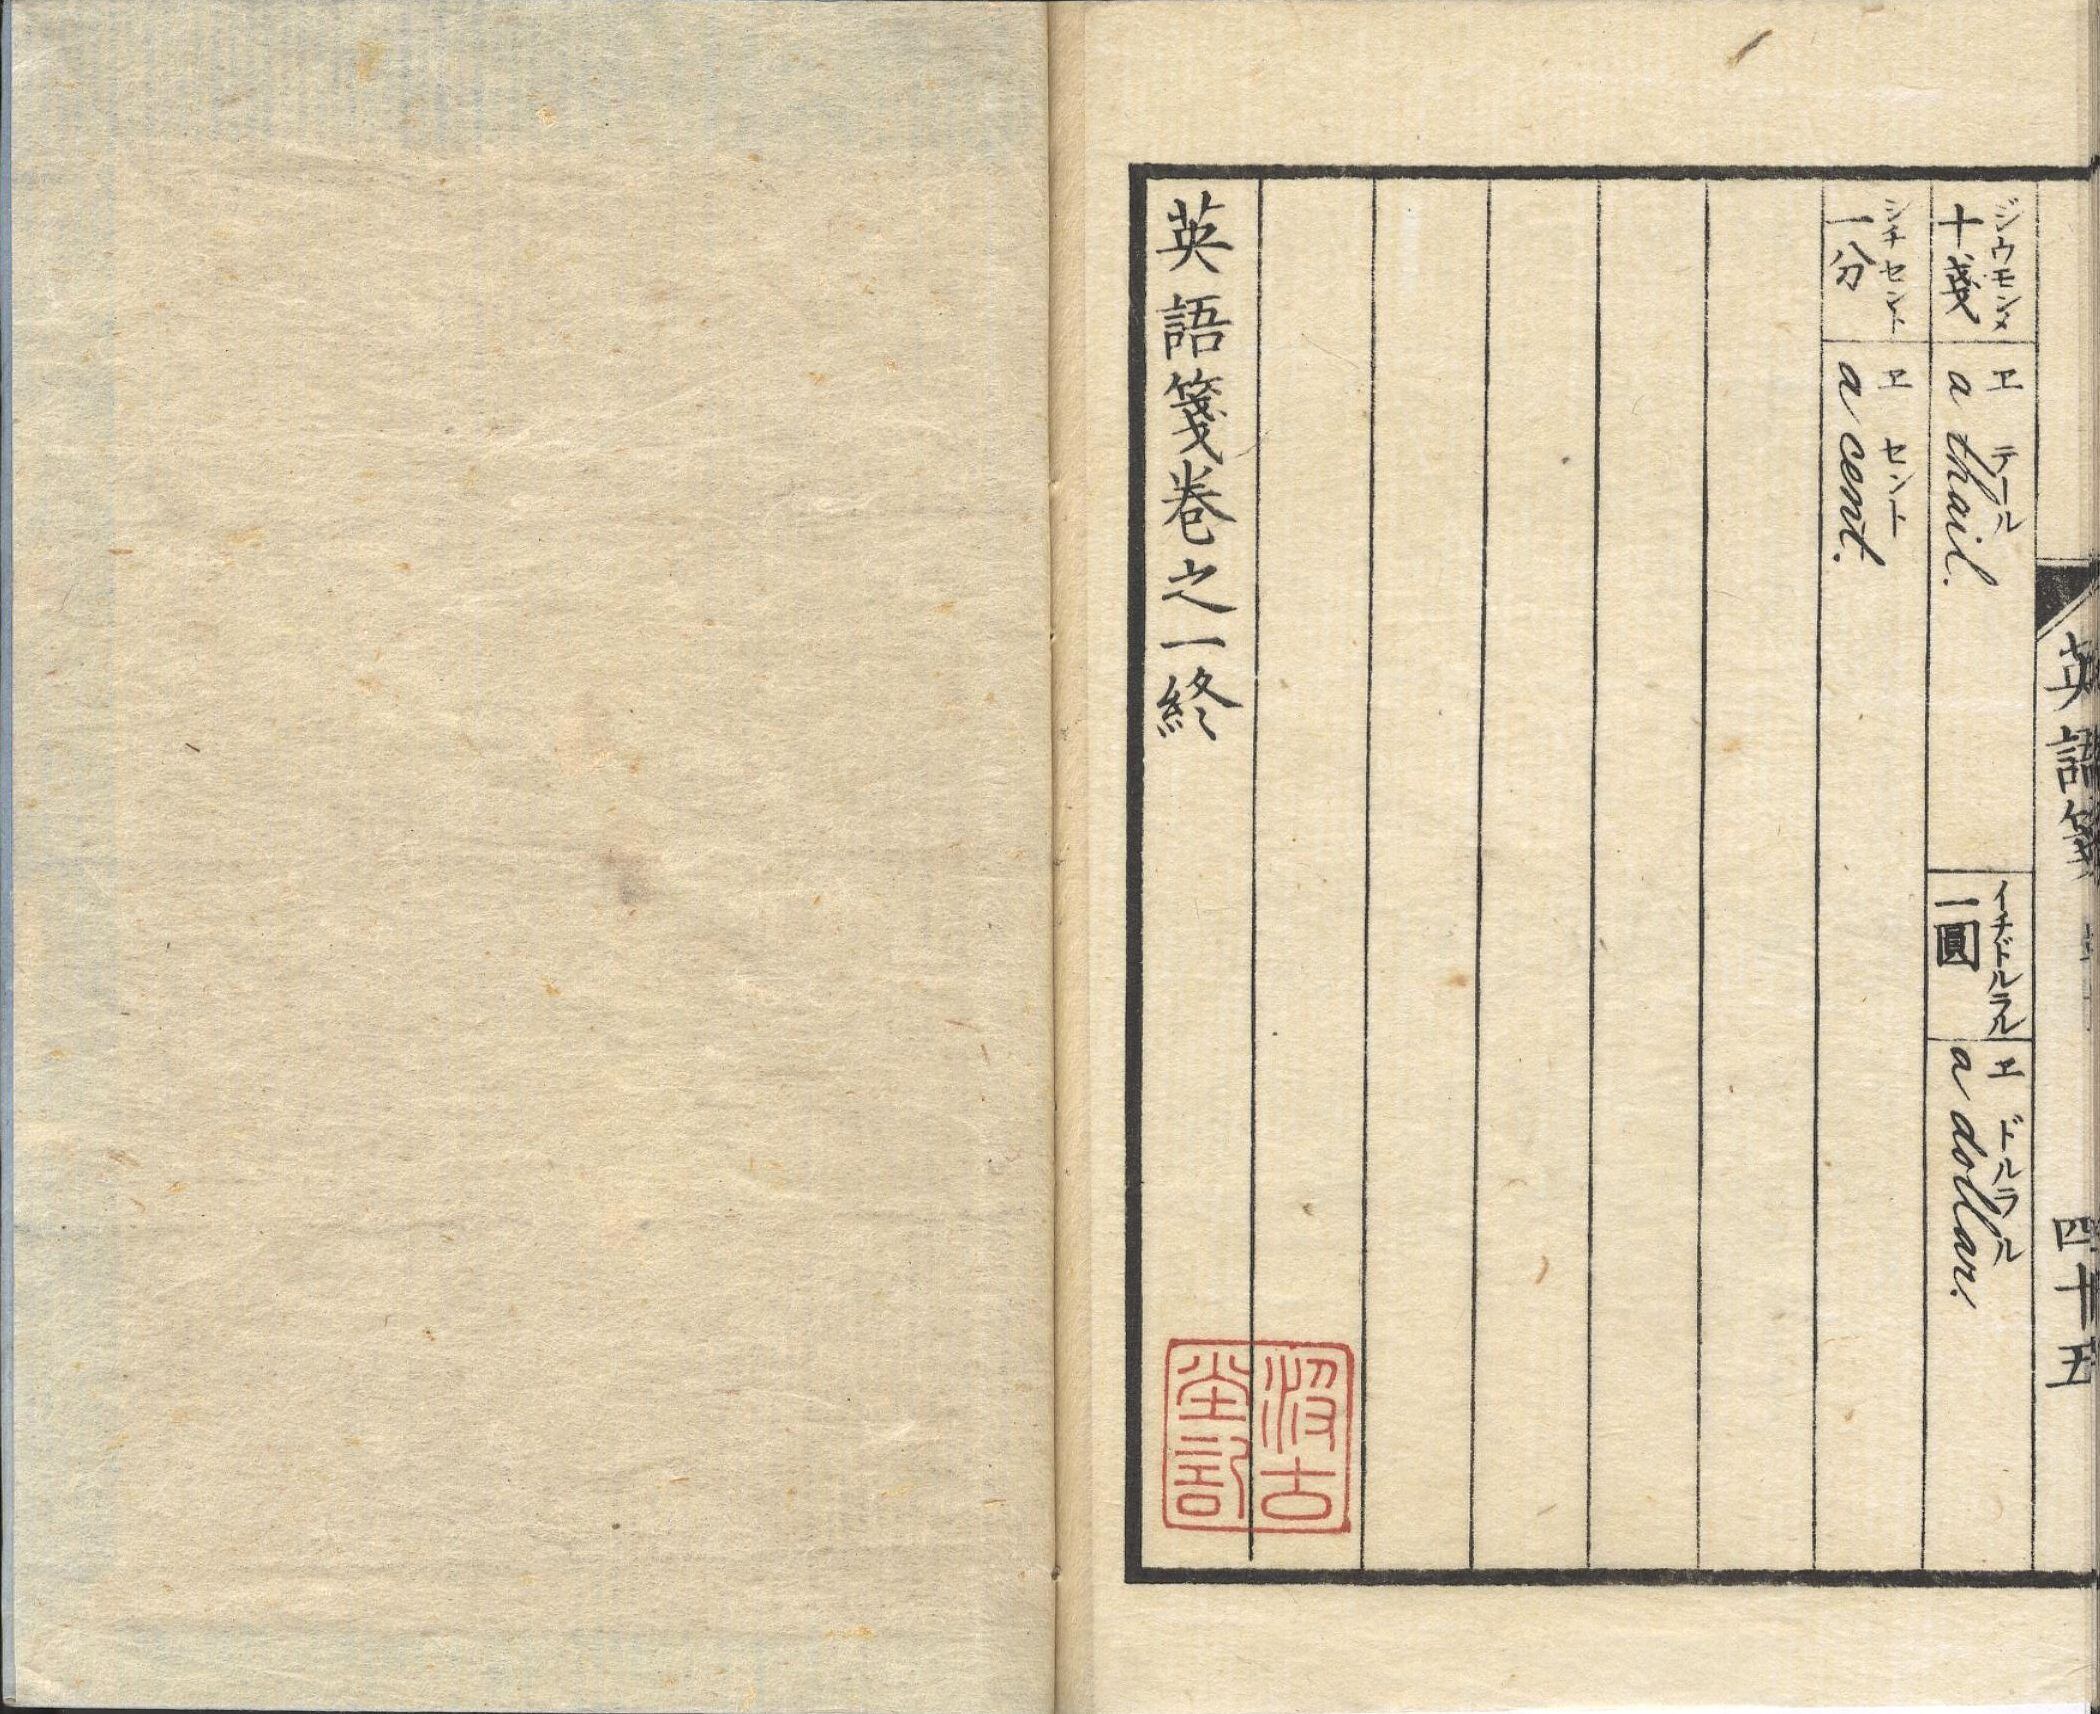 ジウモンメ
十戔
エ テール
a thail.
イチドルラル
一圓
エ ドルラル
a dollar.
シチセント
一分
エ セント
a cent.
英語箋卷之一終
英語箋
四十五